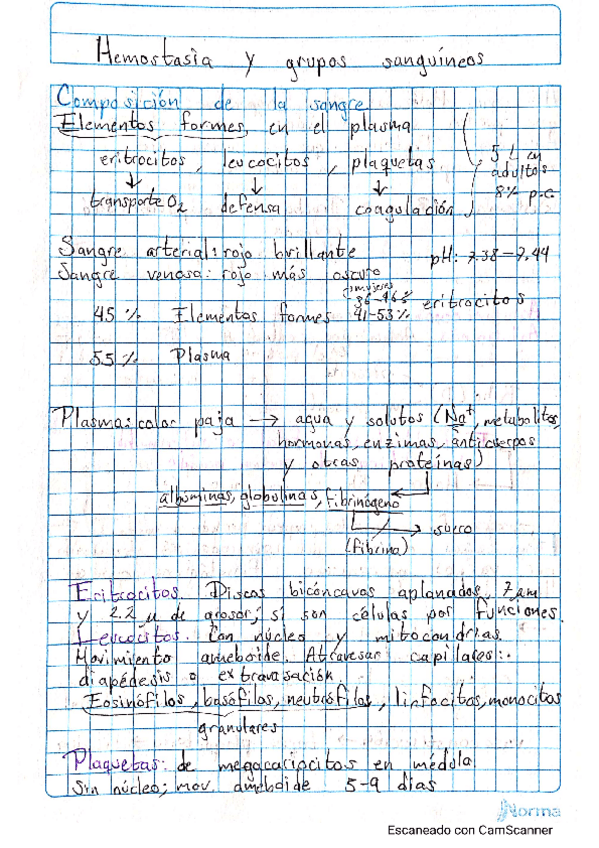 Hemostasia y grupos sanguíneos
Composición de la sangre
Elementos formes en el plasma
eritrocitos, leucocitos, plaquetas
5 L en adultos
8% p.c.
transporte O2 defensa coagulación
Sangre arterial: rojo brillante
pH: 7.38-7.44
Sangre venosa: rojo más oscuro
mujeres
36-46%
45 % Elementos formes 41-53% eritrocitos
55 % Plasma
Plasma: color paja → agua y solutos (Na+, metabolitos,
hormonas, enzimas, anticuerpos
y otras proteínas)
albúminas, globulinas, fibrinógeno
→ suero
(fibrina)
Eritrocitos. Discos bicóncavos aplanados, 7 μm
y 2.2 μ de grosor; sí son células por funciones.
Leucocitos. Con núcleo y mitocondrias.
Movimiento ameboide. Atraviesan capilares:
diapédesis o extravasación
Eosinófilos, basófilos, neutrófilos, linfocitos, monocitos
granulares
Plaquetas: de megacariocitos en médula
Sin núcleo; mov. ameboide 5-9 días
Norma
Escaneado con CamScanner